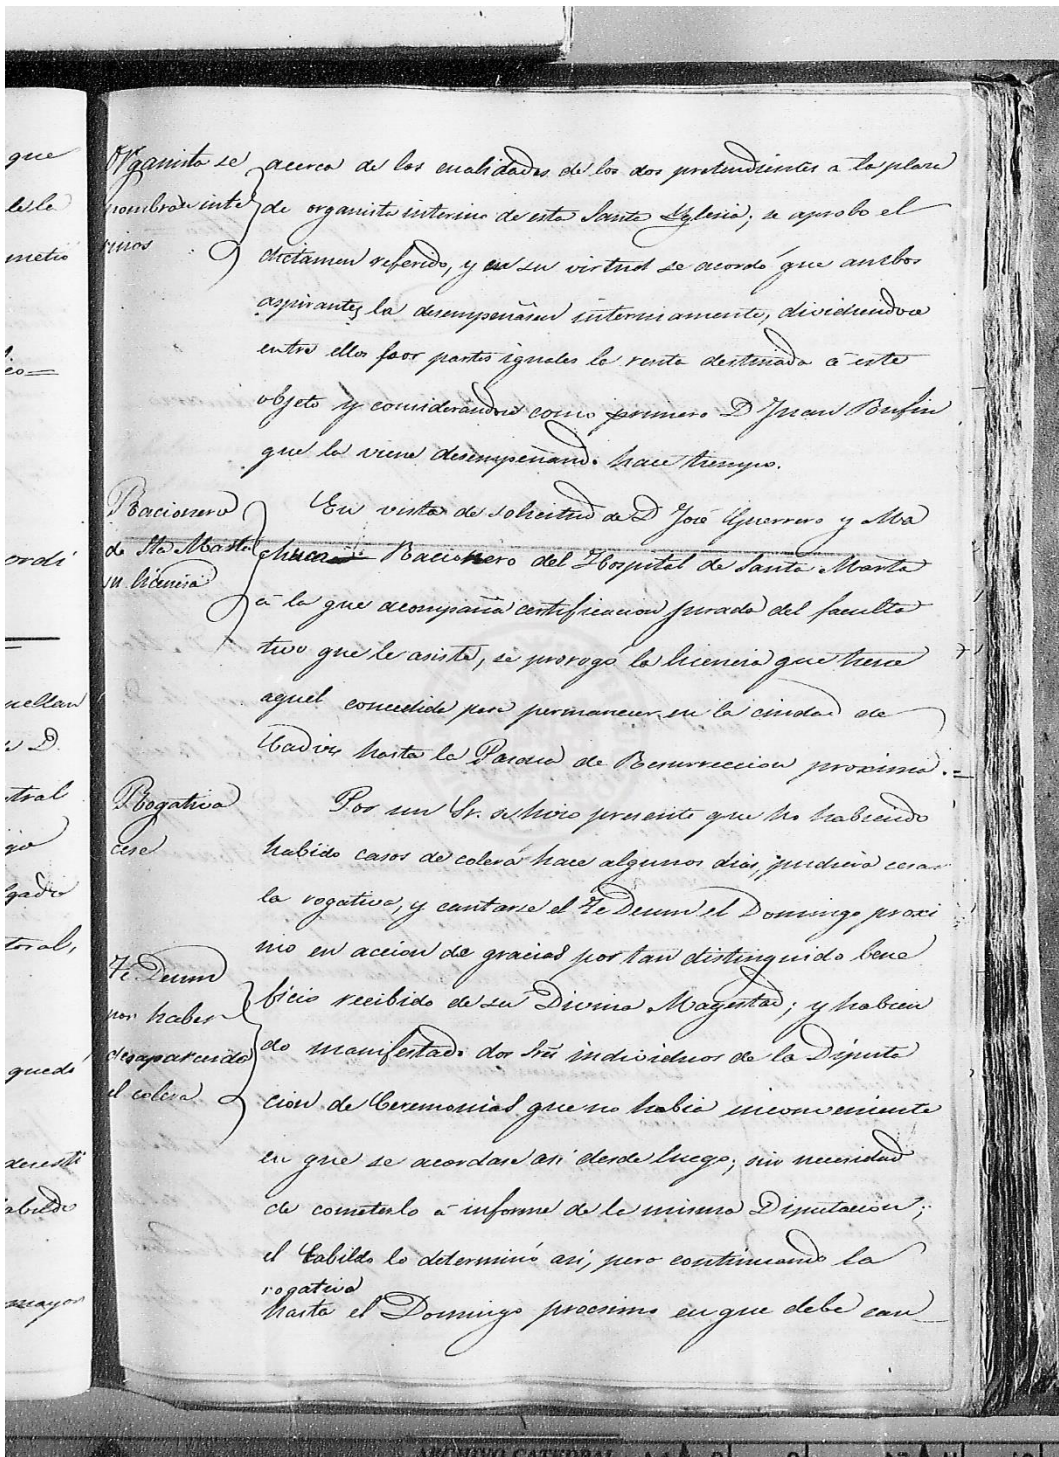 que
lo
metio
ordi
D.
tral
tral,
quedó
mayor
Organista se
nombra de inte
rinos
acerca de las cualidades de los dos pretendientes a la plaza
de organista interino de esta Santa Yglesia; se aprobo el
dictamen referido, y en su virtud se acordó que ambos
aspirantes la desempeñasen interinamente, dividiendose
entre ellos por partes iguales la renta destinada á este
objeto y considerandose como primero D Juan Bufin
que la viene desempeñando hace tiempo.
Racionero
de Sta Marta
su licencia
En vista de solicitud de D José Guerrero y Ma
chuca Racionero del Hospital de Santa Marta
á la que acompaña certificacion jurada del faculta
tivo que le asiste, se prorogó la licencia que tiene
aquel concedida para permanecer en la ciudad de
Cadiz hasta la Pascua de Resurreccion proxima.=
Rogativa
cese
Por un Sr. se hizo presente que no habiendo
habido casos de colera hace algunos dias, pudiera cesar
la rogativa, y cantarse el Te Deum el Domingo proxi
mo en accion de gracias por tan distinguido bene
ficio recibido de su Divina Magestad; y habien
do manifestado dos Sres individuos de la Diputa
cion de Ceremonias que no habia inconveniente
en que se acordase asi desde luego, sin necesidad
de cometerlo á informe de la misma Diputacion;
el Cabildo lo determinó asi, pero continuando la
rogativa
hasta el Domingo procsimo en que debe can
Te Deum
por haber
desaparecido
el colera
ARCHIVO CATEDRAL